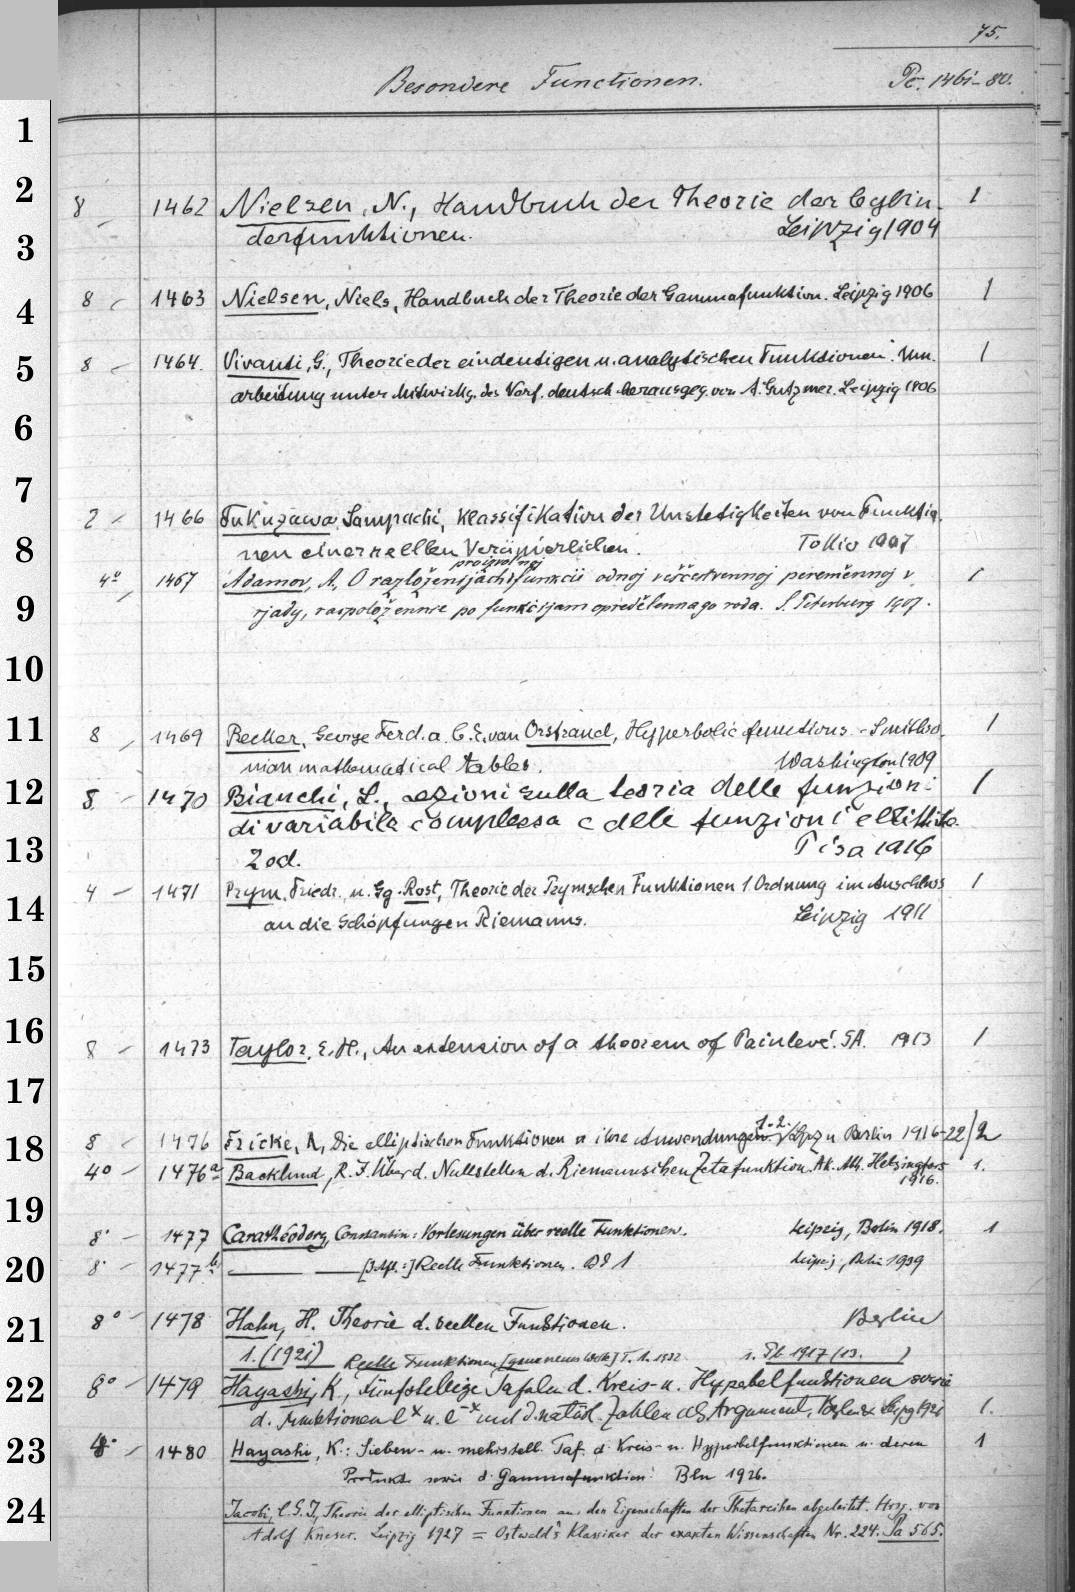 75.
Besondere Functionen. Pc. 1461-80.
1
2
8 1462 Nielsen, N., Handbuch der Theorie der Cylin- 1
3
derfunktionen. Leipzig 1904
4
8 1463 Nielsen, Niels, Handbuch der Theorie der Gammafunktion. Leipzig 1906 1
5
8 1464. Vivanti, G., Theorie der eindeutigen u. analytischen Funktionen. Um- 1
arbeitung unter Mitwirkg. des Verf. deutsch herausgeg. von A. Gutzmer. Leipzig 1906
6
7
2 1466 Fukuzawa, Sampachi, Klassifikation der Unstetigkeiten von Funktio-
8
nen einer reellen Veränderlichen. Tokio 1907
proizvol'noj
4° 1467 Adamov, A., O razloženijach funkcii odnoj veščestvennoj peremennoj v 1
9
rjady, raspoložennie po funkcijam opredelennago roda. S. Peterburg 1907.
10
11
8 1469 Becker, George Ferd. a. C. E. van Orstrand, Hyperbolic functions. - Smithso- 1
nian mathematical tables. Washington 1909
12
8 1470 Bianchi, L., Lezioni sulla teoria delle funzioni 1
di variabile complessa e delle funzioni ellittiche.
13
2 ed. Pisa 1916
14
4 1471 Prym, Friedr. u. Gg. Rost, Theorie der Prymschen Funktionen 1. Ordnung im Anschluss 1
an die Schöpfungen Riemanns. Leipzig 1911
15
16
8 1473 Taylor, E. H., An extension of a theorem of Painlevé. SA. 1913 1
17
1.-2.
18
8 1476 Fricke, R., Die elliptischen Funktionen u. ihre Anwendungen. Lpzg u. Berlin 1916-22 / 2
4° 1476a Backlund, R. J. Über d. Nullstellen d. Riemannschen Zetafunktion. Ak. Abh. Helsingfors 1.
1916.
19
8° 1477 Carathéodory, Constantin: Vorlesungen über reelle Funktionen. Leipzig, Berlin 1918. 1
20
8° 1477b — — [3. Aufl.:] Reelle Funktionen. Bd 1 Leipzig, Berlin 1939
21
8° 1478 Hahn, H. Theorie d. reellen Funktionen. Berlin
1. (1921) Reelle Funktionen [ganz neues Werk] T. 1. 1932
22
8° 1479 Hayashi, K., Fünfstellige Tafeln d. Kreis- u. Hyperbelfunktionen sowie
d. Funktionen e^x u. e^-x mit d. natürl. Zahlen als Argument, Berlin & Leipzg 1921 1.
23
1480 Hayashi, K.: Sieben- u. mehrstell. Taf. d. Kreis- u. Hyperbelfunktionen u. deren 1
Produkte sowie d. Gammafunktion. Bln 1926.
24
Jacobi, C. G. J., Theorie der elliptischen Funktionen aus den Eigenschaften der Thetareihen abgeleitet. Hrsg. von
Adolf Kneser. Leipzig 1927 = Ostwald's Klassiker der exakten Wissenschaften Nr. 224. Pa 565.